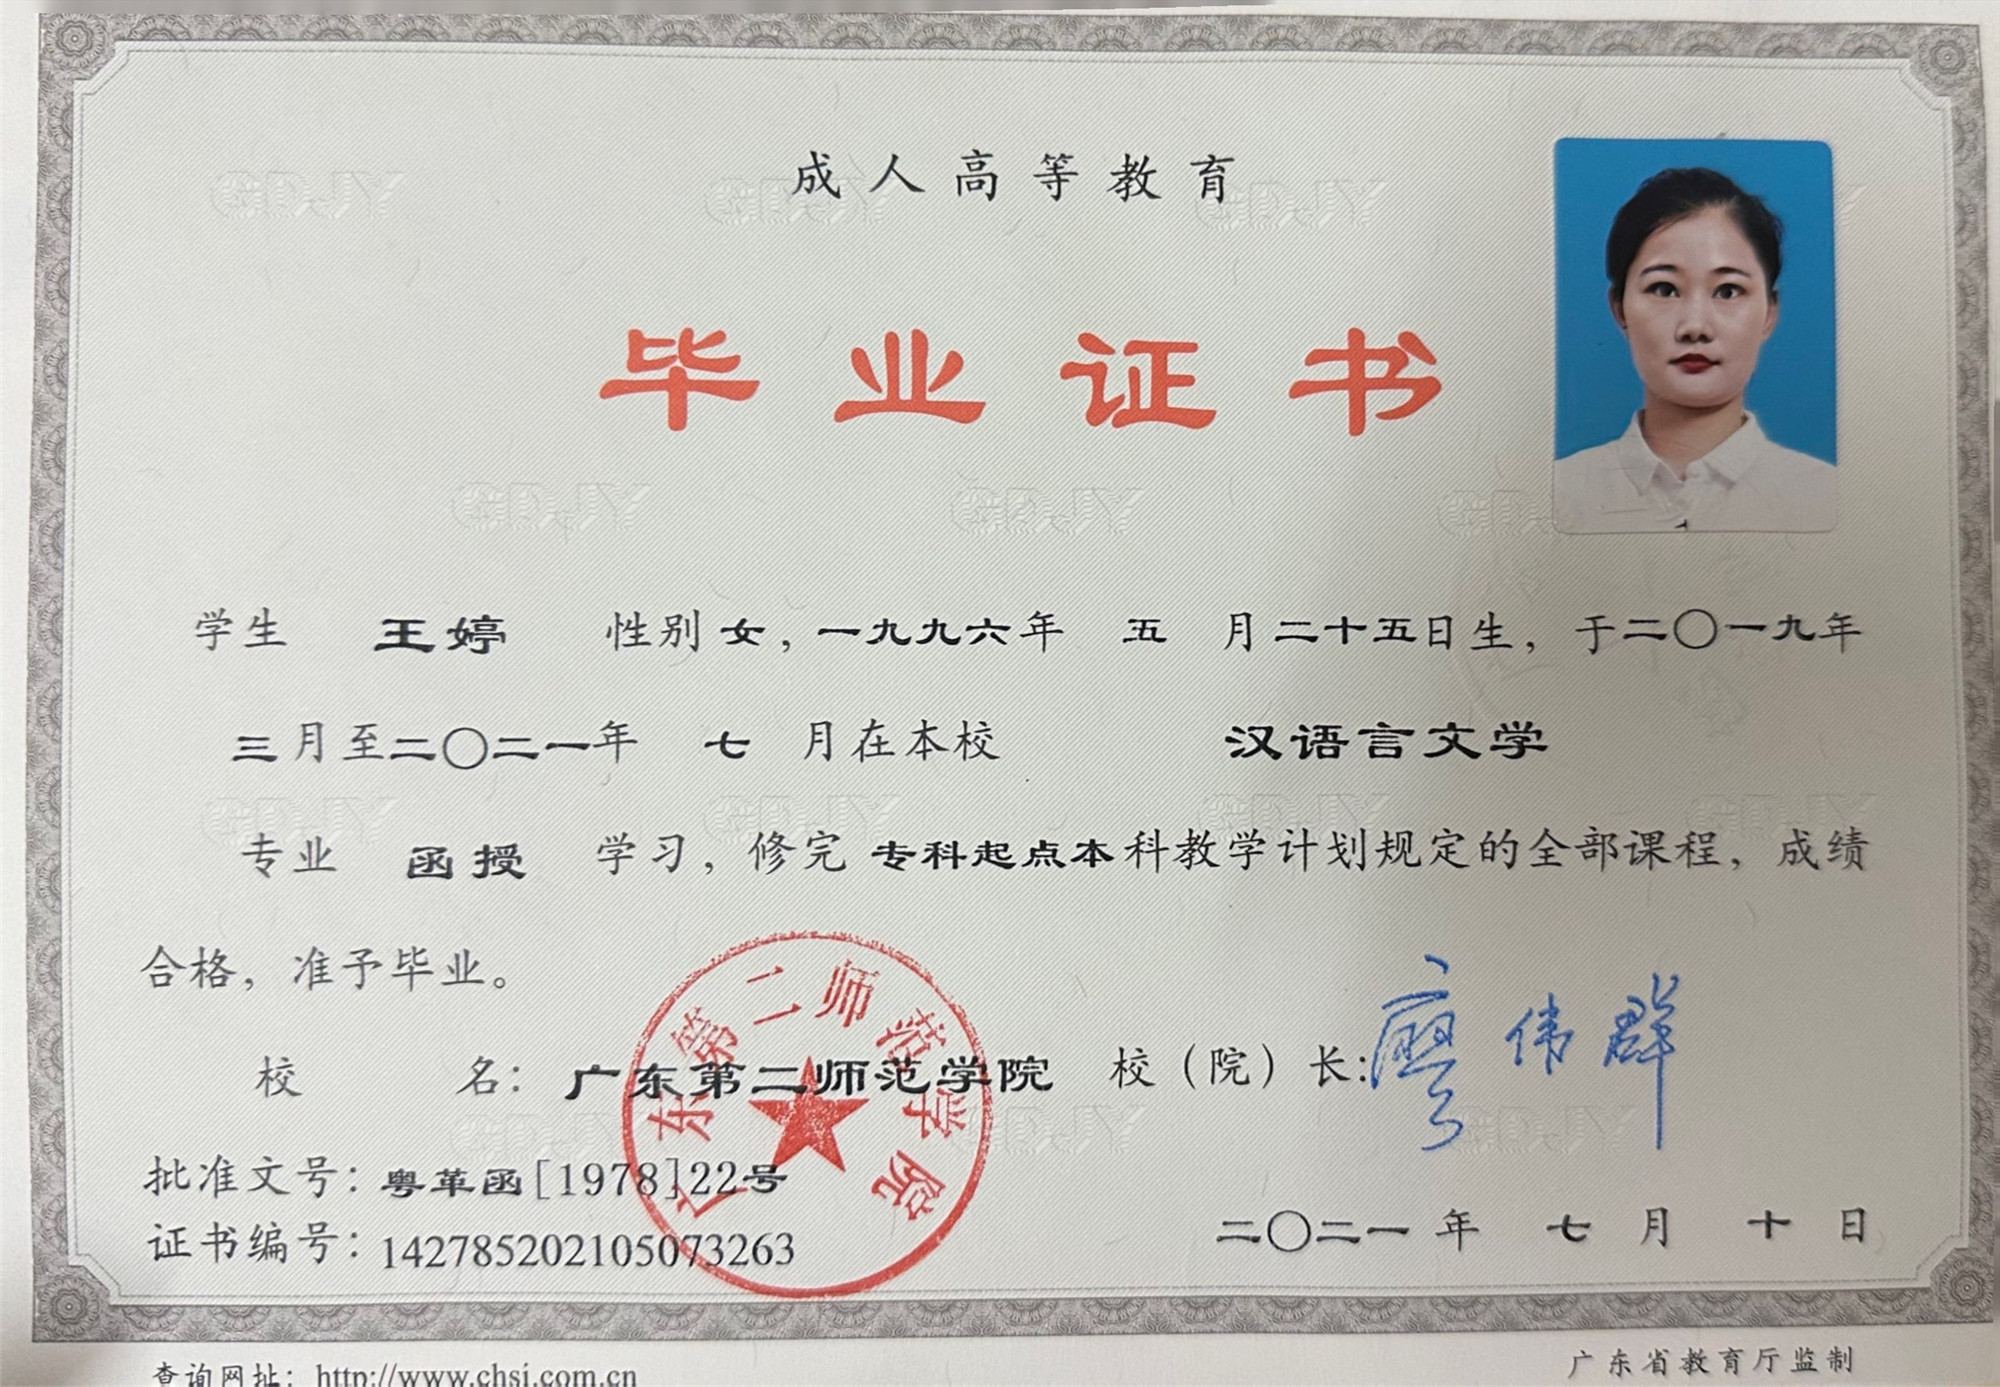 成人高等教育
毕业证书
学生 王婷 性别女，一九九六年 五 月二十五日生，于二〇一九年
三月至二〇二一年 七 月在本校 汉语言文学
专业 函授 学习，修完 专科起点本科教学计划规定的全部课程，成绩
合格，准予毕业。
校 名：广东第二师范学院 校（院）长：廖伟群
广东第二师范学院
批准文号：粤革函[1978]22号
证书编号：142785202105073263
二〇二一 年 七 月 十 日
查询网址：http://www.chsi.com.cn
广东省教育厅监制
GDJY